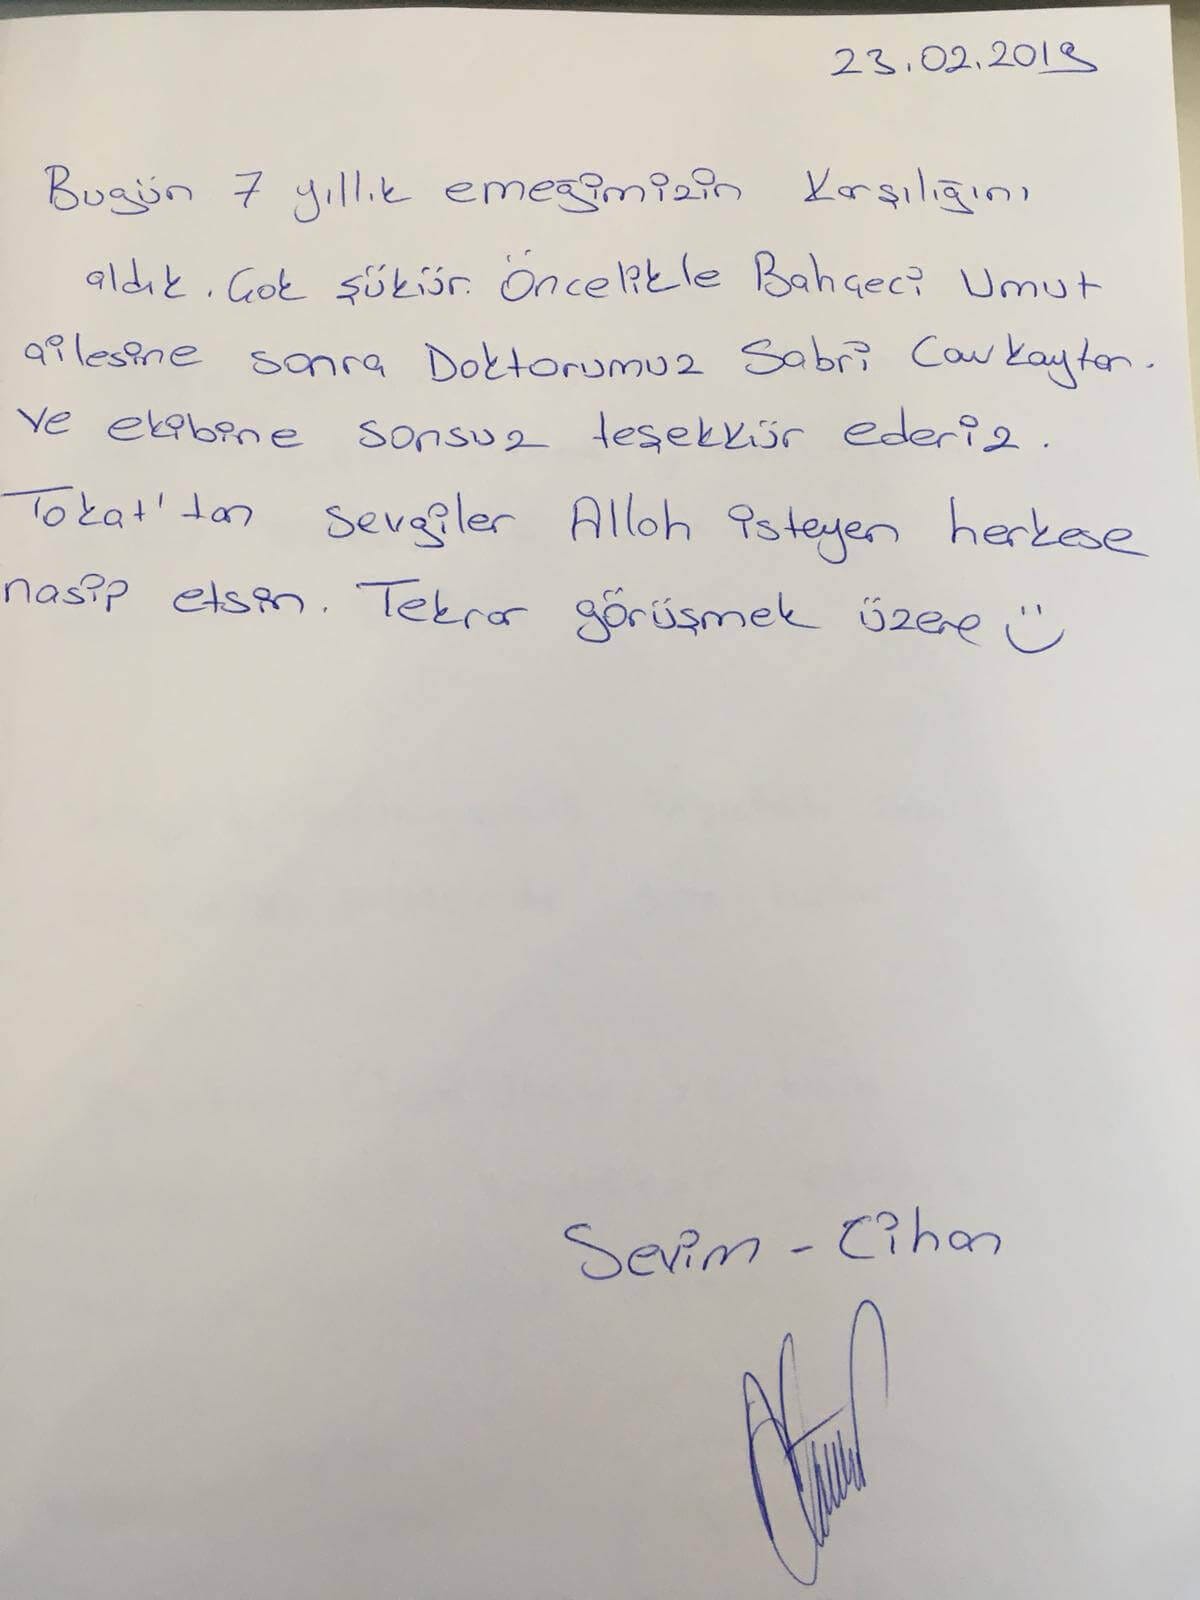 23.02.2019
Bugün 7 yıllık emeğimizin karşılığını
aldık. Çok şükür. Öncelikle Bahçeci Umut
ailesine sonra Doktorumuz Sabri Cavkaytar.
ve ekibine sonsuz teşekkür ederiz.
Tokat'tan sevgiler Allah isteyen herkese
nasip etsin. Tekrar görüşmek üzere
Sevim - Cihan